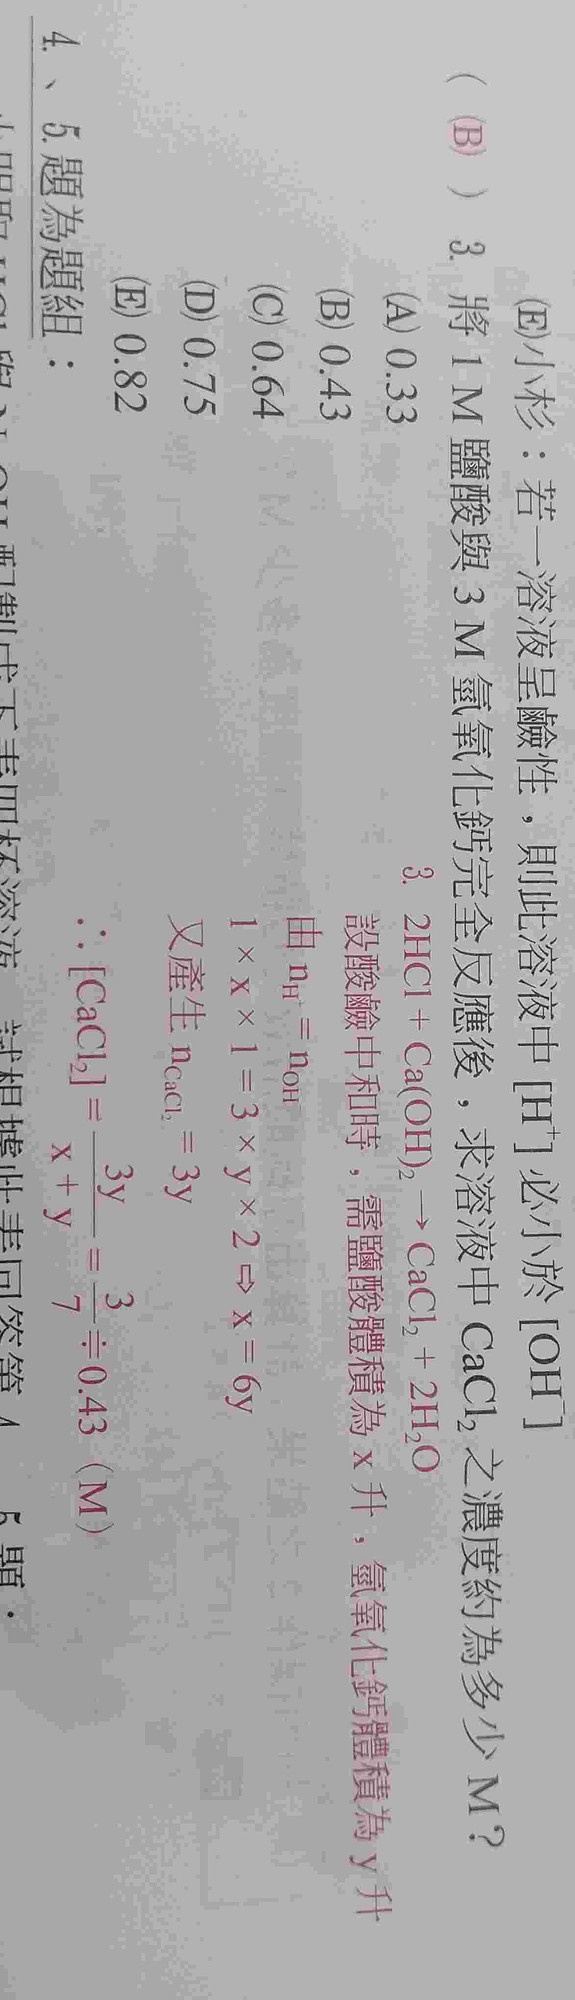 (E)小杉：若一溶液呈鹼性，則此溶液中 [H⁺] 必小於 [OH⁻]
( (B) ) 3. 將 1 M 鹽酸與 3 M 氫氧化鈣完全反應後，求溶液中 CaCl₂ 之濃度約為多少 M？
(A) 0.33
(B) 0.43
(C) 0.64
(D) 0.75
(E) 0.82
3. 2HCl + Ca(OH)₂ → CaCl₂ + 2H₂O
設酸鹼中和時，需鹽酸體積為 x 升，氫氧化鈣體積為 y 升
由 n_H⁺ = n_OH⁻
1 × x × 1 = 3 × y × 2 ⇨ x = 6y
又產生 n_CaCl₂ = 3y
∴ [CaCl₂] = 3y / (x + y) = 3/7 ≒ 0.43（M）
4.、5.題為題組：
配製成下表四杯溶液，試根據此表回答第 4、5 題：